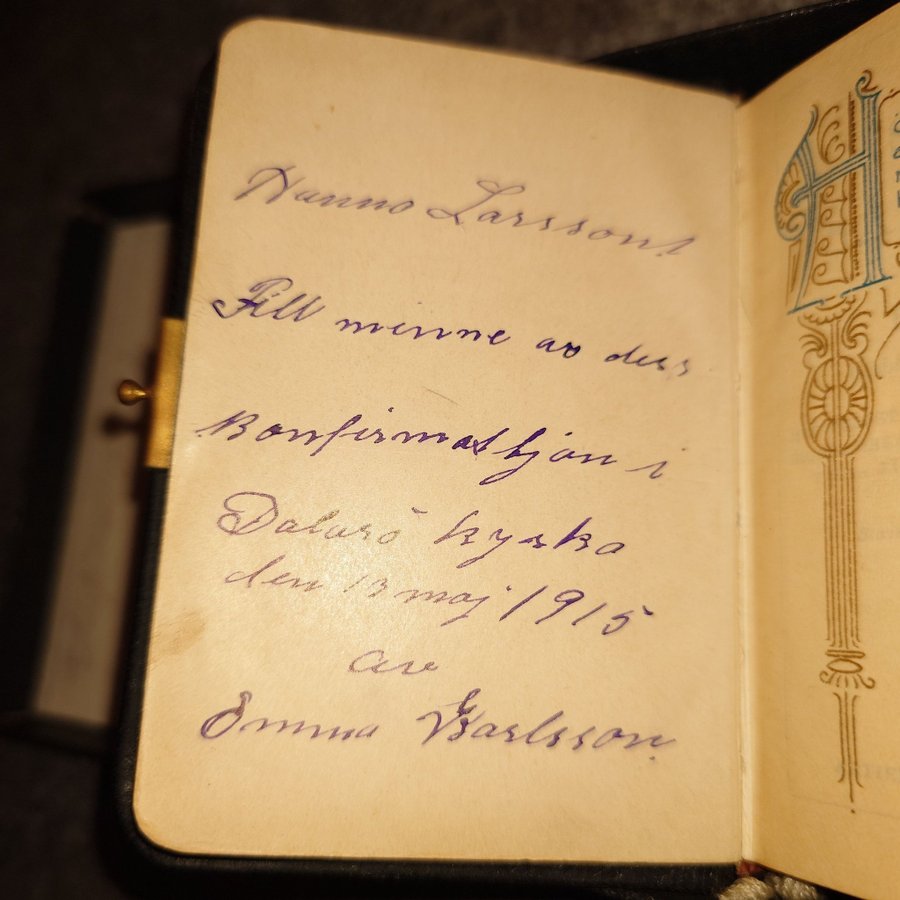 Hanno Larsson!
Till minne av dess
Konfirmathjon i
Dalarö kyrka
den 13 maj 1915
av
Emma Karlsson.